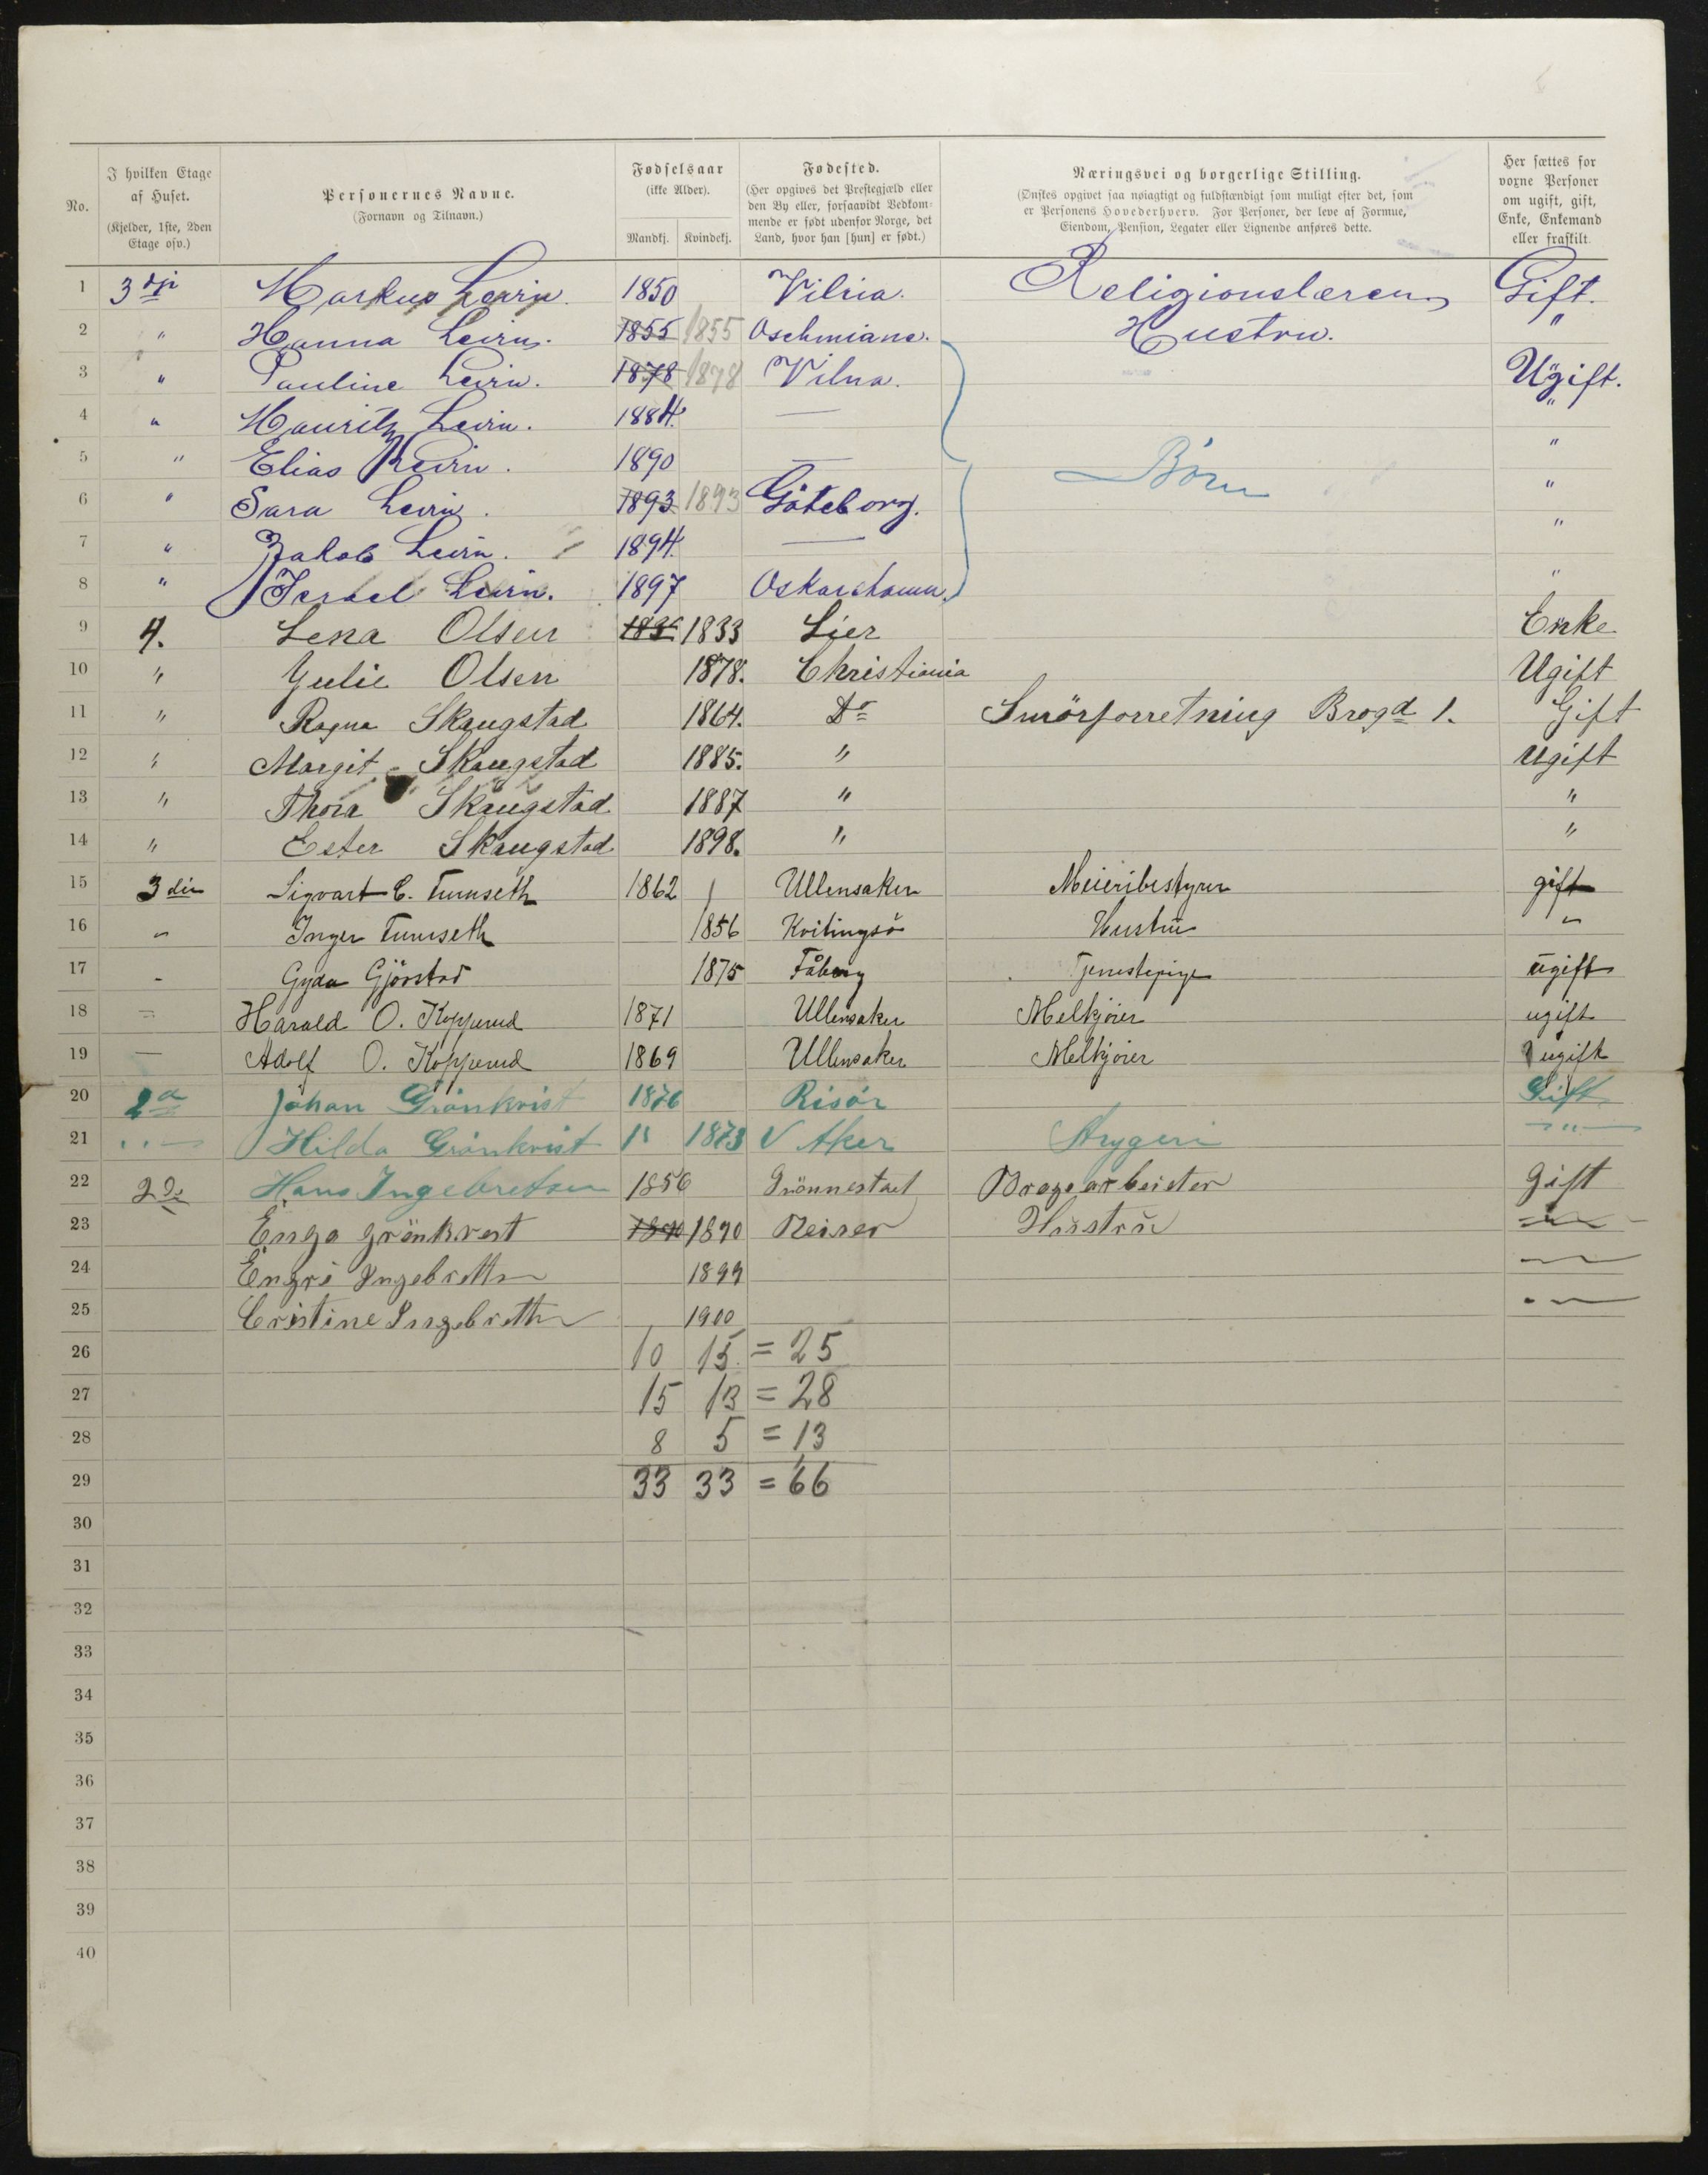 No. I hvilken Etage af Huset. (Kjelder, 1ste, 2den Etage osv.) Personernes Navne. (Fornavn og Tilnavn.) Fødselsaar (ikke Alder). Mandkj. Kvindekj. Fødested. (Her opgives det Prestegjæld eller den By eller, forsaavidt Vedkommende er født udenfor Norge, det Land, hvor han [hun] er født.) Næringsvei og borgerlige Stilling. (Ønskes opgivet saa nøiagtigt og fuldstændigt som muligt efter det, som er Personens Hovederhverv. For Personer, der leve af Formue, Eiendom, Pension, Legater eller Lignende anføres dette. Her sættes for voxne Personer om ugift, gift, Enke, Enkemand eller fraskilt.
1 3die Markus Levin. 1850 Vilna. Religionslærer Gift.
2 " Hanna Levin. 1855 1855 Oschmiane. Hustru. "
3 " Pauline Levin. 1878 1878 Vilna. Ugift.
4 " Mauritz Levin. 1884. — "
5 " Elias Levin. 1890 — Børn "
6 " Sara Levin. 1893 1893 Göteborg. "
7 " Jakob Levin. 1894. — "
8 " Israel Levin. 1897 Oskarshamn. "
9 4. Lena Olsen 1833 Lier Enke
10 " Julie Olsen 1878. Christiania Ugift
11 " Ragna Skaugstad 1864. Do Smörforretning Brogd 1. Gift
12 " Margit Skaugstad 1885. " Ugift
13 " Thora Skaugstad 1887 " "
14 " Ester Skaugstad 1898. " "
15 3die Sigvart C. Tumseth 1862 Ullensaker Meieribestyrer gift
16 " Inger Tumseth 1856 Kvitingsö Hustru "
17 - Gyda Gjörstad 1875 Fåberg Tjenestepige ugift
18 = Harald O. Kopperud 1871 Ullensaker Melkjører ugift
19 — Adolf O. Kopperud 1869 Ullensaker Melkjører ugift
20 2a Johan Grönkvist 1876 Risör Gift
21 " Hilda Grönkvist 1873 V Aker Strygeri "
22 2de Hans Ingebretsen 1856 Grönnestad gift
23 Enga Grönkvest 1890 1870 Hustru
24 Engri Ingebretten 1899 —
25 Cristine Ingebretten 1900 —
26 10 15 = 25
27 15 13 = 28
28 8 5 = 13
29 33 33 = 66
30
31
32
33
34
35
36
37
38
39
40